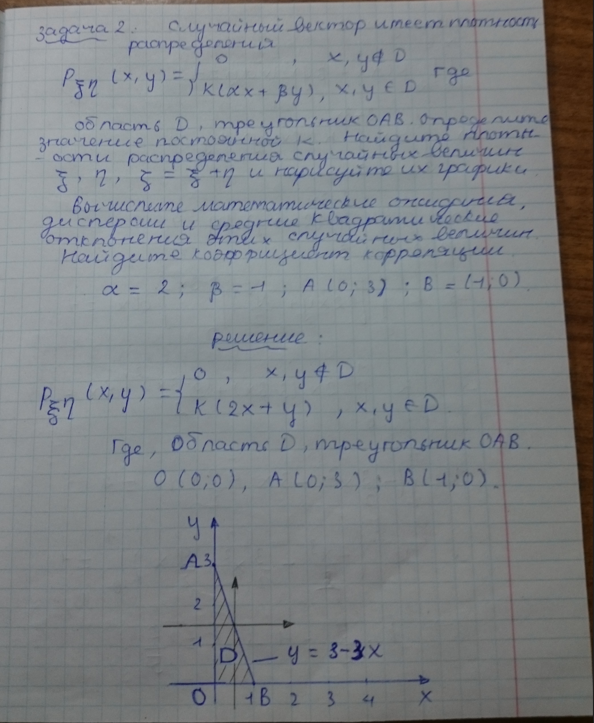 задача 2. Случайный вектор имеет плотность
распределения
P_ξη (x, y) = { 0 , x, y ∉ D
K(αx + βy), x, y ∈ D где
область D, треугольник OAB. Определите
значение постоянной K. Найдите плотн-
-ости распределения случайных величин
ξ, η, ξ = ξ + η и нарисуйте их графики.
Вычислите математические ожидания,
дисперсии и средние квадратические
отклонения этих случайных величин.
Найдите коэффициент корреляции.
α = 2 ; β = -1 ; A (0; 3) ; B = (1; 0).
решение :
P_ξη (x, y) = { 0 , x, y ∉ D
K(2x + y) , x, y ∈ D.
Где, Область D, треугольник OAB.
O (0;0), A (0; 3) ; B (1; 0).
y
A 3
2
1
D
y = 3-3x
O 1 B 2 3 4 x